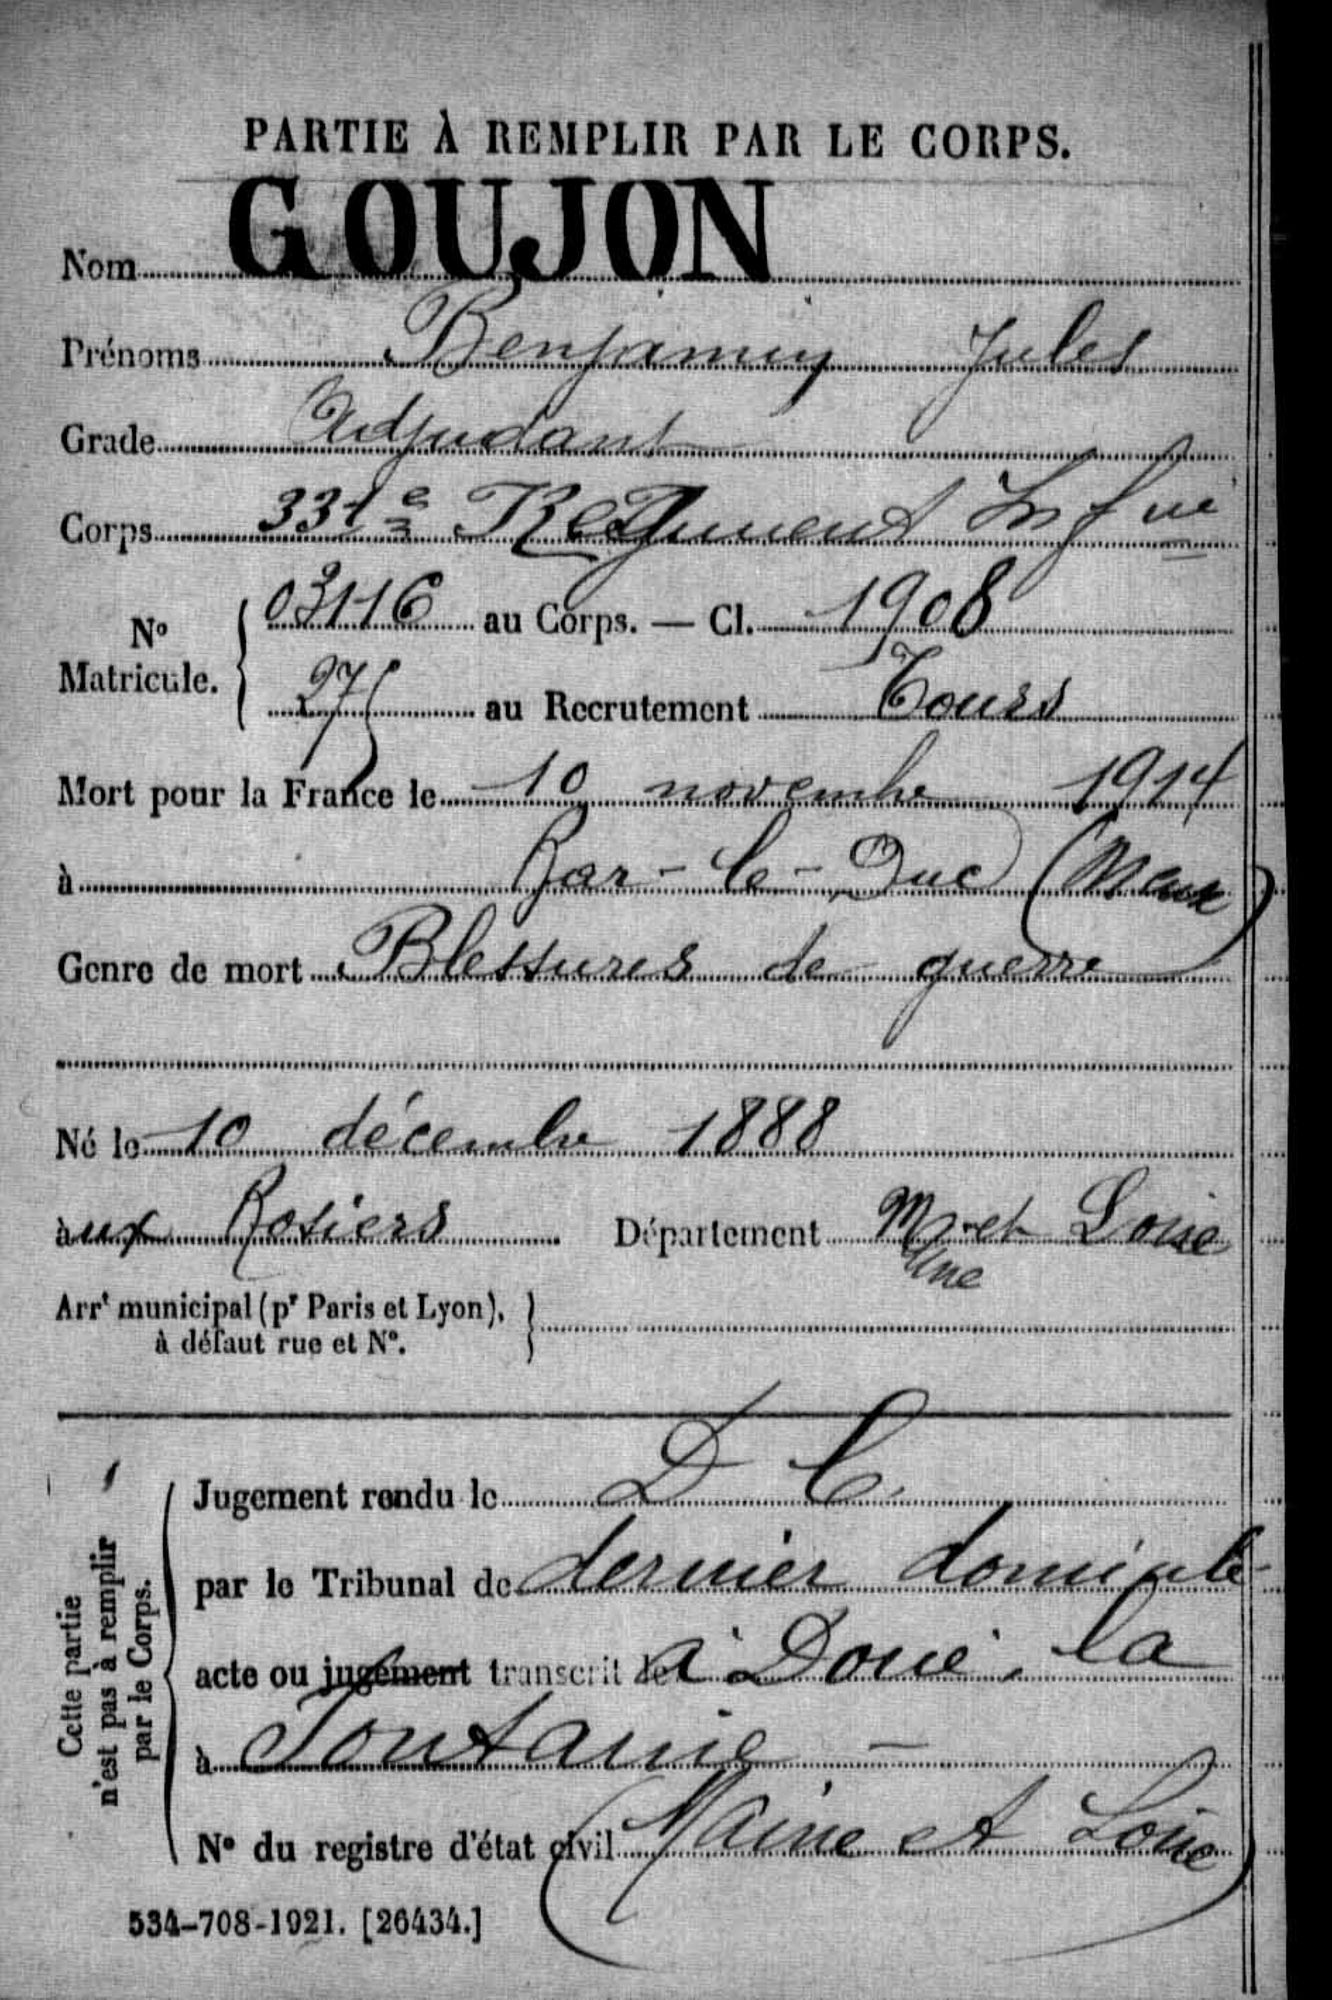 PARTIE À REMPLIR PAR LE CORPS.
Nom GOUJON
Prénoms Benjamin Jules
Grade Adjudant
Corps 331e Régiment Inf rie
No Matricule. { 03116 au Corps. — Cl. 1908
275 au Recrutement Tours
Mort pour la France le 10 novembre 1914
à Bar-le-Duc (Meuse)
Genre de mort Blessures de guerre
Né le 10 décembre 1888
aux Rosiers Département M ne et Loire
Arrt municipal (pr Paris et Lyon), à défaut rue et No. }
Cette partie n'est pas à remplir par le Corps.
Jugement rendu le D C.
par le Tribunal de dernier domicile
acte ou jugement transcrit le à Doué. la
à Fontaine —
No du registre d'état civil (Maine et Loire)
534-708-1921. [26434.]